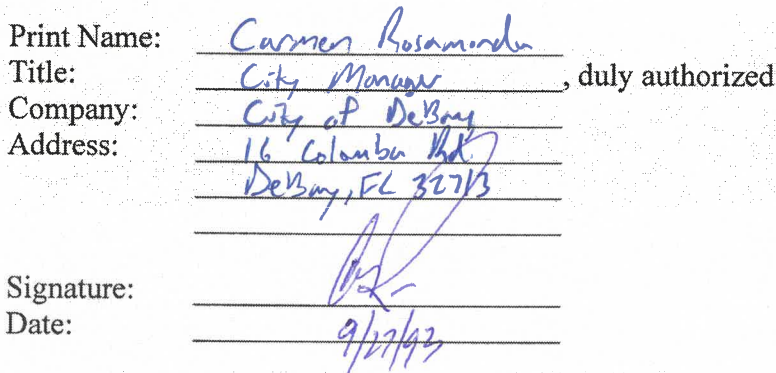 Print Name: Carmen Rosamonda
Title: City Manager, duly authorized
Company: City of DeBary
Address: 16 Colomba Rd.
DeBary, FL 32713
Signature:
Date: 9/27/93